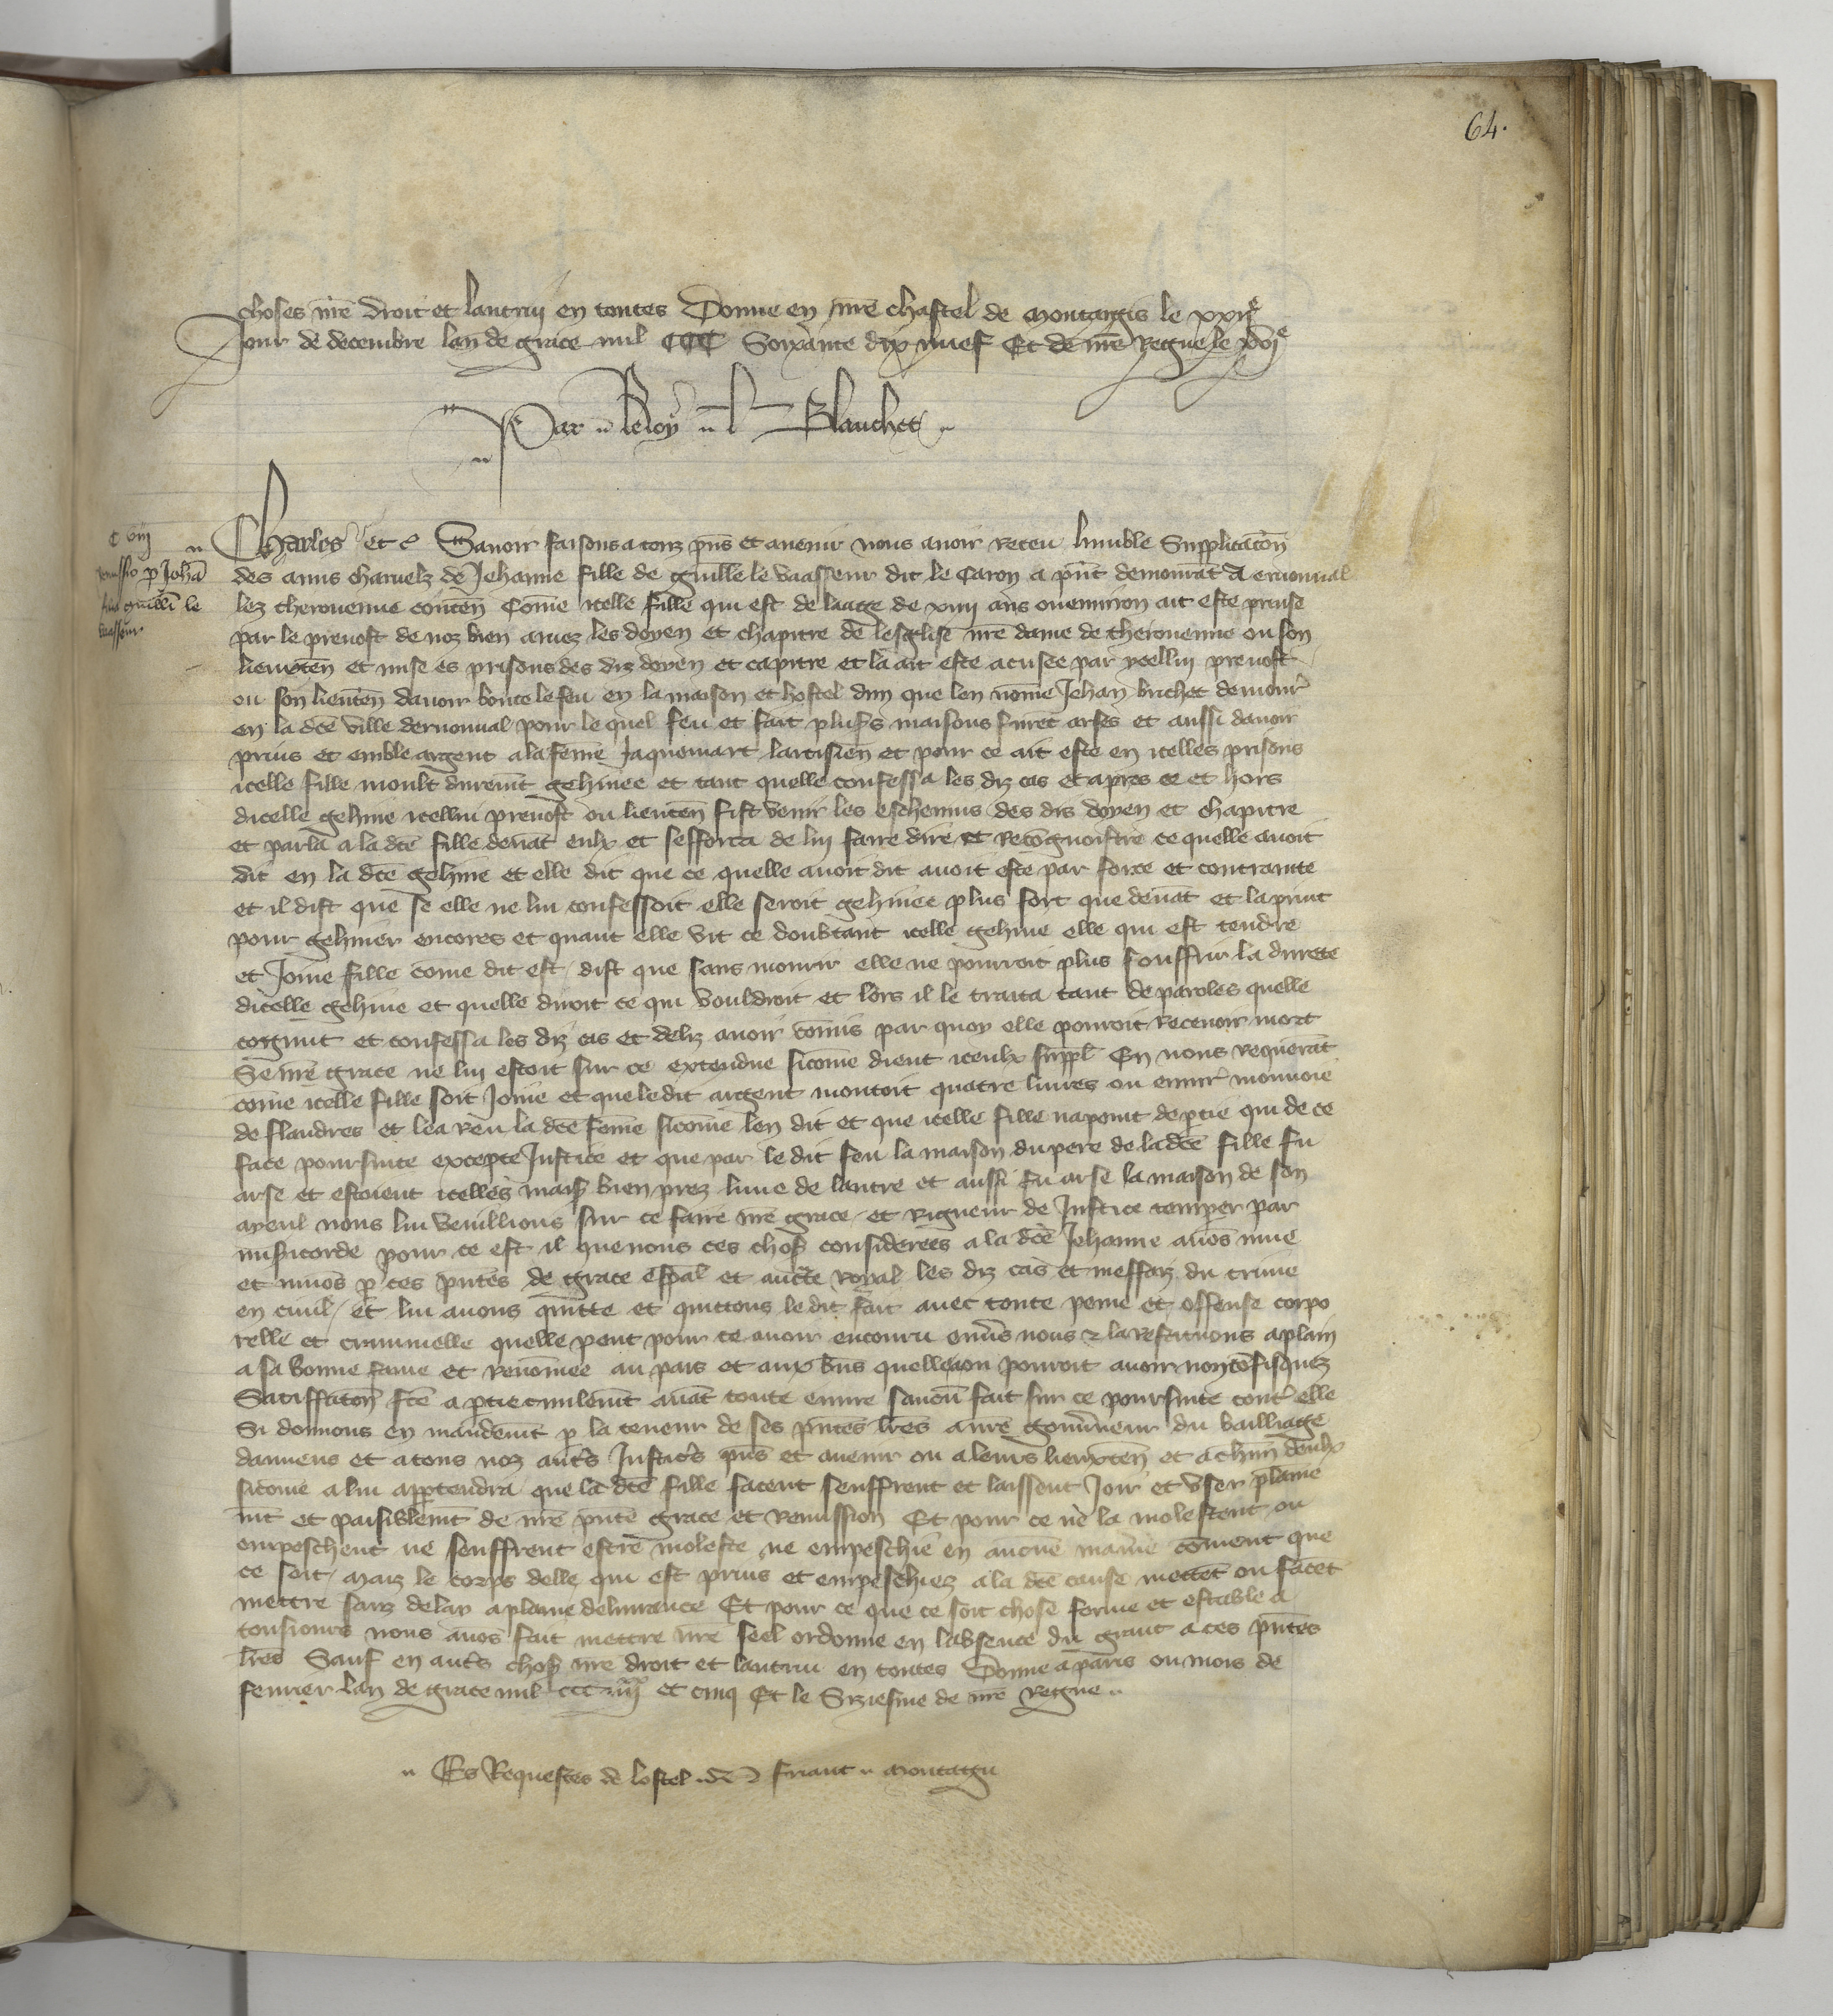 64.
choses nr̄e droit et lautrui en toutes Donne en nr̄e chastel de montargis le xxiie
Jour de decembre lan de grace mil CCC Soixante dix nuef Et de nr̄e Regne le xvie
Par le Roy Blanchet
C viij
remissio p Joh̄a
filia guill̄i le
vasseur
Charles etc Sauoir faisons a touz pn̄s et auenir nous auoir receu humble Supplicaton̄
des amis charnelz de Jehanne fille de guill̄e le vasseur dit le Caron a pn̄t demourāt A eruonual
lez therouenne conten̄ Com̄e icelle fille qui est de laage de xiiii ans ou enuiron ait este prinse
par le preuost de noz bien amez les doyen et chapitre de lesglise nr̄e dame de therouenne ou son
lieuten̄ et mise es prisons des diz doyen et capitre et la ait este acusee par ycellui preuost
ou son lieuten̄ dauoir boute le feu en la maison et hostel dun que len nom̄e Jehan brichet demour̄
en la dc̄e ville deruonual pour le quel feu et fait plus̄s maisons furēt arses et aussi dauoir
prins et emble argent a la fem̄e Jaquemart lartisien et pour ce ait este en icelles prisons
icelle fille moult durem̄t gehinee et tant quelle confessa les diz cas et apres ce et hors
dicelle gehine icellui preuost ou lieuten̄ fist venir les escheuins des diz doyen et chapitre
et parla a la dc̄e fille deuāt eulx et sefforca de lui faire dire et recōgnoistre ce quelle auoit
dit en la dc̄e gehine et elle dit que ce quelle auoit dit auoit este par force et contrainte
et il dist que se elle ne lui confessoit elle seroit gehinee plus fort que deuāt et la print
pour gehiner encores et quant elle vit ce doubtant icelle gehine elle qui est tendre
et Jone fille com̄e dit est dist que sans mourir elle ne pourroit plus souffrir la durete
dicelle gehine et quelle diroit ce qui vouldroit et lors il le traita tant de paroles quelle
cognut et confessa les diz cas et deliz auoir com̄is par quoy elle pourroit receuoir mort
Se nr̄e grace ne lui estoit sur ce extendue sicom̄e dient iceulx suppl̄ En nous requerāt
com̄e icelle fille soit Jone et que le dit argent montoit quatre liures ou enuir̄ monnoie
de flandres et lea reu la dc̄e fem̄e sicom̄e len dit et que icelle fille na point de ptie qui de ce
face poursuite excepte Justice et que par le dit feu la maison du pere de la dc̄e fille fu
arse et estoient icelles mais̄ bien prez lune de lautre et aussi fu arse la maison de son
ayeul nous lui veuillions sur ce faire nr̄e grace et rigueur de Justice temper par
mis̄icorde pour ce est il que nous ces chos̄ considerees a la dc̄e Jehanne auōs mue
et muōs p ces pn̄tes de grace esp̄al et auct̄e Royal les diz cas et meffaiz du crime
en ciuil et lui auons quitte et quittons le dit fait auec toute peine et offense corpo
relle et criminelle quelle peut pour ce auoir encouru enuers nous et la restituons aplain
a sa bonne fame et renom̄ee au pais et aux bn̄s quelle pouroit auoir non cōfisquez
Satiffacton̄ fc̄e a ptie ciuilem̄t auāt toute euure saucun̄ fait sur ce poursuite contr̄ elle
Si donnons en mandem̄t p la teneur de ses pn̄tes lr̄es a nr̄e gouu̇neur du bailliage
damiens et a tous noz autr̄s Justic̄rs pn̄s et auenir ou a leurs lieuxten̄ et a chūn deulx
sicom̄e a lui apptendra que la dc̄e fille facent seuffrent et laissent Joir et vser plaine
m̄t et paisiblem̄t de nr̄e pn̄te grace et remission Et pour ce ne la molestent ou
empeschent ne seuffrent estre molestee ne empeschie en aucun̄e manie͛ com̄ent que
ce soit Maiz le corps delle qui est prins et empeschiez a la dc̄e cause mettēt ou facēt
mettre sanz delay a plaine deliurance Et pour ce que ce soit chose ferme et estable a
tousiours nous auōs fait mettre nr̄e seel ordonne en labsence du grant a ces pn̄tes
lr̄es Sauf en autr̄s chos̄ nr̄e droit et lautrui en toutes Donne a paris ou mois de
feurier lan de grace mil ccc iiiixx et cinq Et le Siziesme de nr̄e Regne
Es Requestes de lostel Friant Montagu